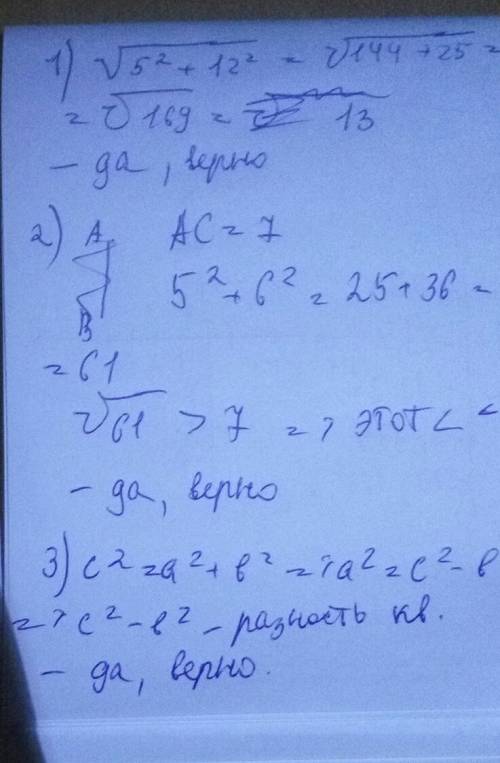 1) √5² + 12² = √144 + 25 =
= √169 = 13
– да, верно
2) A AC = 7
B 5² + 6² = 25 + 36 =
= 61
√61 > 7 => этот < <
– да, верно
3) c² = a² + в² => a² = c² – в
=> c² – в² – разность кв.
– да, верно.